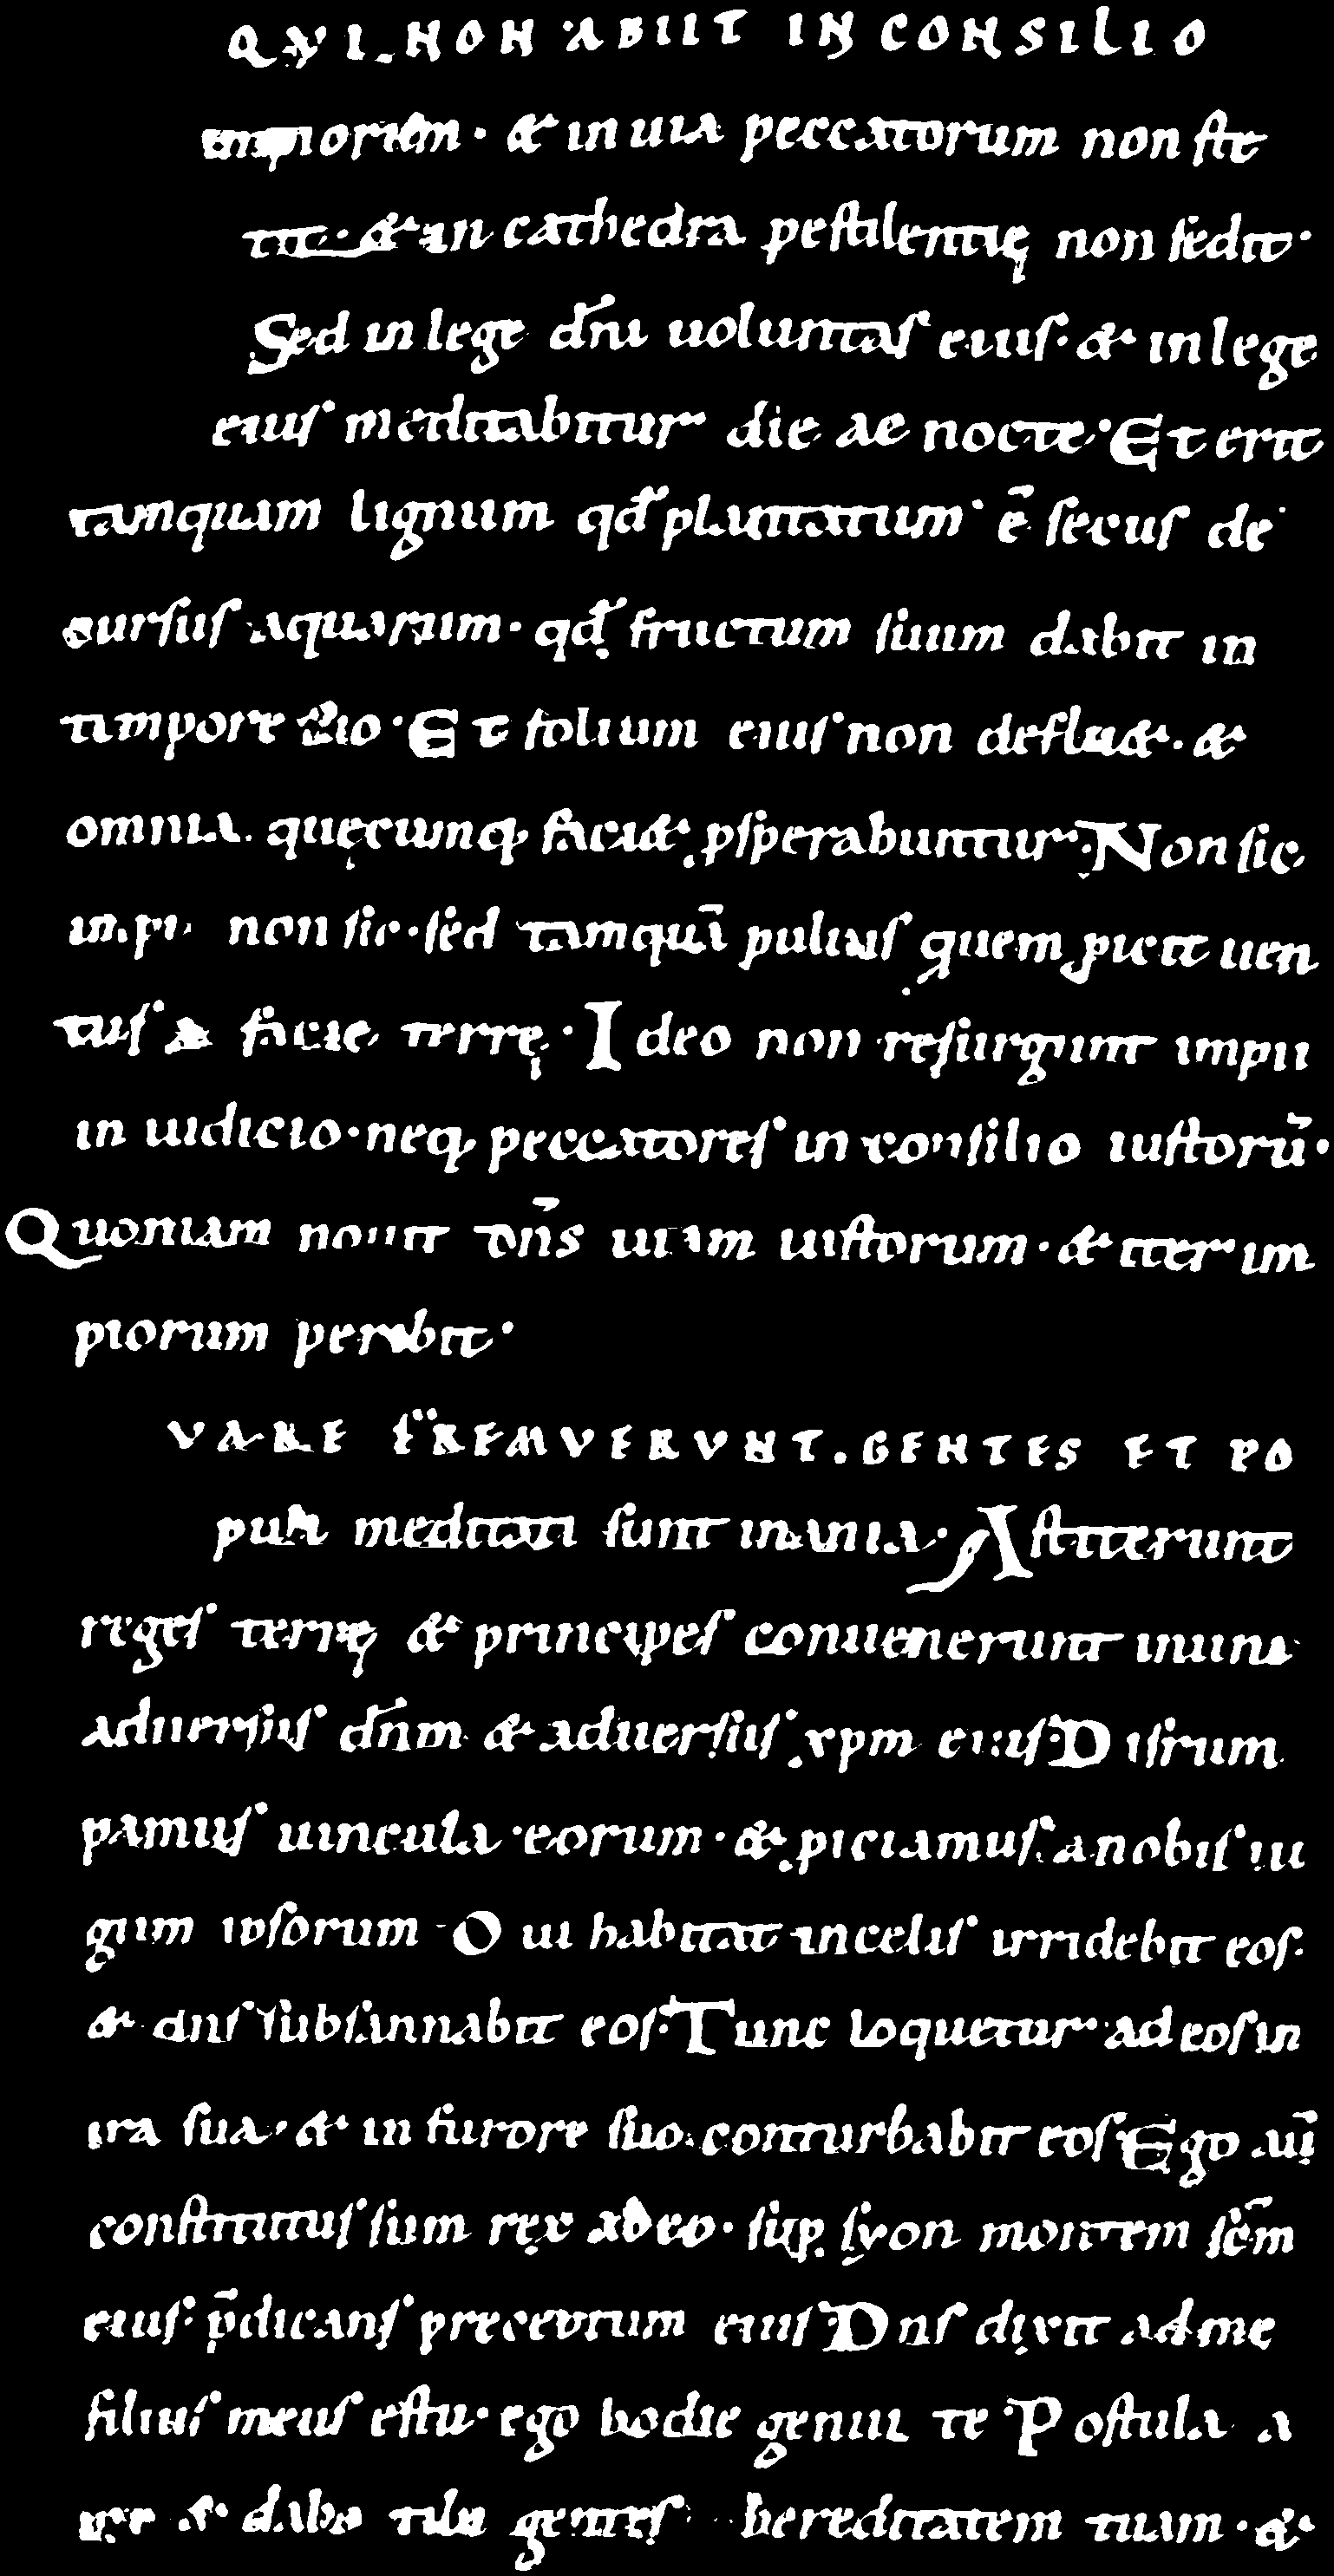 QVI NON ABIIT IN CONSILIO
impiorum · & in uia peccatorum non ste
tit · & in cathedra pestilentię non sedit ·
Sed in lege dn̄i uoluntas eius · & in lege
eius meditabitur die ac nocte · Et erit
tamquam lignum qđ plantatum ē secus de
cursus aquarum · qđ fructum suum dabit in
timpore suo · Et folium eius non defluet · &
omnia quęcumq; faci& p̱sperabuntur · Non sic
impii non sic · sed tamquā puluis quem p̱icit uen
tus a facie terrę · Ideo non resurgunt impii
in iudicio · neq; peccatores in consilio iustorū ·
Quoniam nouit dn̄s uiam iustorum · & iter im
piorum peribit ·
VARE FREMVERVNT · GENTES ET PO
puli meditati sunt inania · Astiterunt
reges terrę & principes conuenerunt inunu
aduersus dn̄m & aduersus xpm eius Disrum
pamus uincula eorum · & p̱iciamus a nobis iu
gum ipsorum Qui habitat in celis irridebit eos ·
& dns subsannabit eos · Tunc loquetur ad eos in
ira sua · & in furore suo conturbabit eos Ego aūi
constitutus sum rex ab eo · sup̱ syon montem sc̄m
eius · p̄dicans preceptum eius Dns dixit ad me
filius meus es tu · ego hodie genui te Postula a
me & dabo tibi gentes hereditatem tuam · &